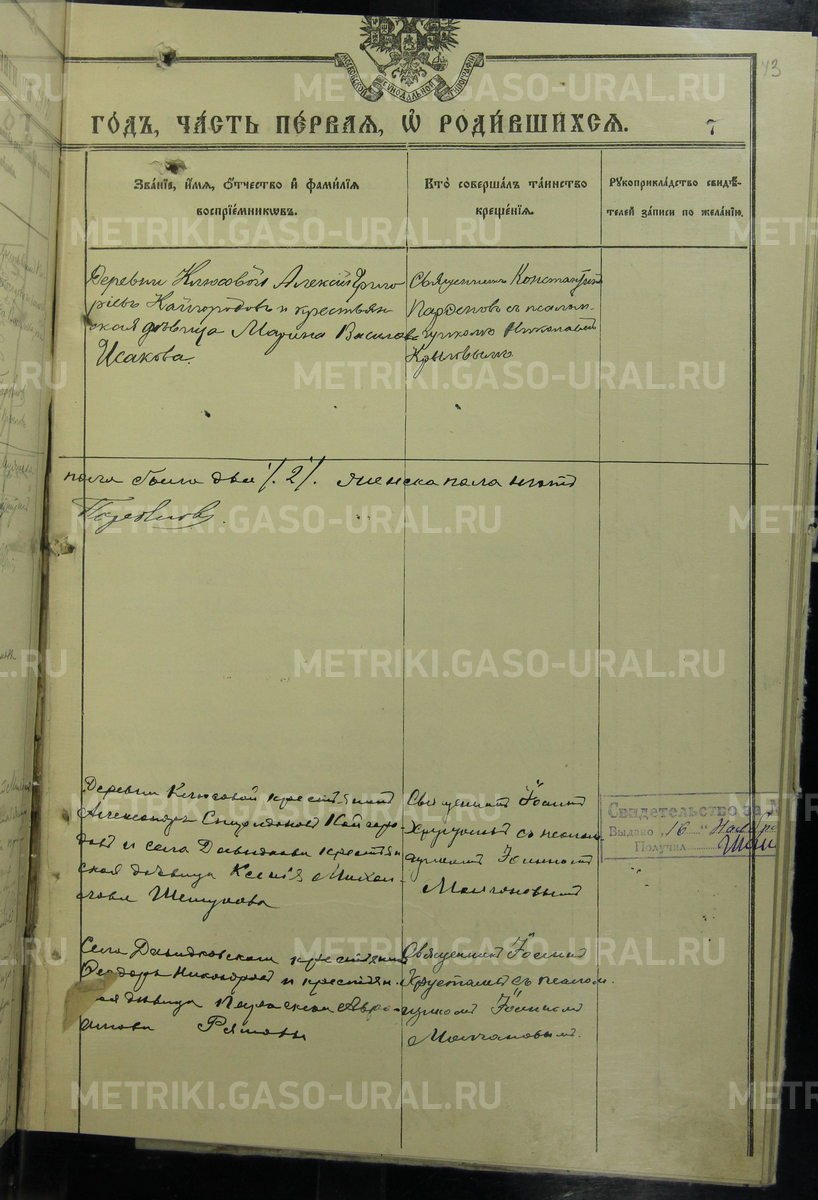 МОСКОВСКОЙ СѴНОДАЛЬНОЙ ТИПОГРАФІИ
43
ГО́ДЪ, ЧА́СТЬ ПЕ́РВАЯ, Ѽ РОДИ́ВШИХСЯ.
7
Зва́нїе, и́мя, о́тчество и҆ фами́лїя воспрїе́мниковъ.
Кто̀ соверша́лъ та́инство креще́нїя.
Рукоприкла́дство свидѣ́телей за́писи по жела́нїю.
Деревни Ключевой Алексѣй Григо
рьевъ Кайгородовъ и крестьян
ская дѣвица Марина Василева
Исакова.
Священникъ Константинъ
Парѳеновъ съ псалом-
щикомъ Николаемъ
Крыловымъ
пола было два %. 2 %. женска пола нѣтъ
Деревни Ключевой крестьянинъ
Александръ Спиридоновъ Кайгоро
довъ и села Давыдкова крестьян
ская дѣвица Ксенія Михаи-
лова Шешукова
Священникъ Іоаннъ
Хрусталевъ съ псалом
щикомъ Іоанномъ
Молчановымъ
Свидетельство за №
Выдано „16“
Получил
Села Давыдковскаго крестьянинъ
Ѳеодоръ и крестьян
ская дѣвица
Священникъ Іоаннъ
Хрусталевъ съ псалом
щикомъ Іоанномъ
Молчановымъ.
METRIKI.GASO-URAL.RU